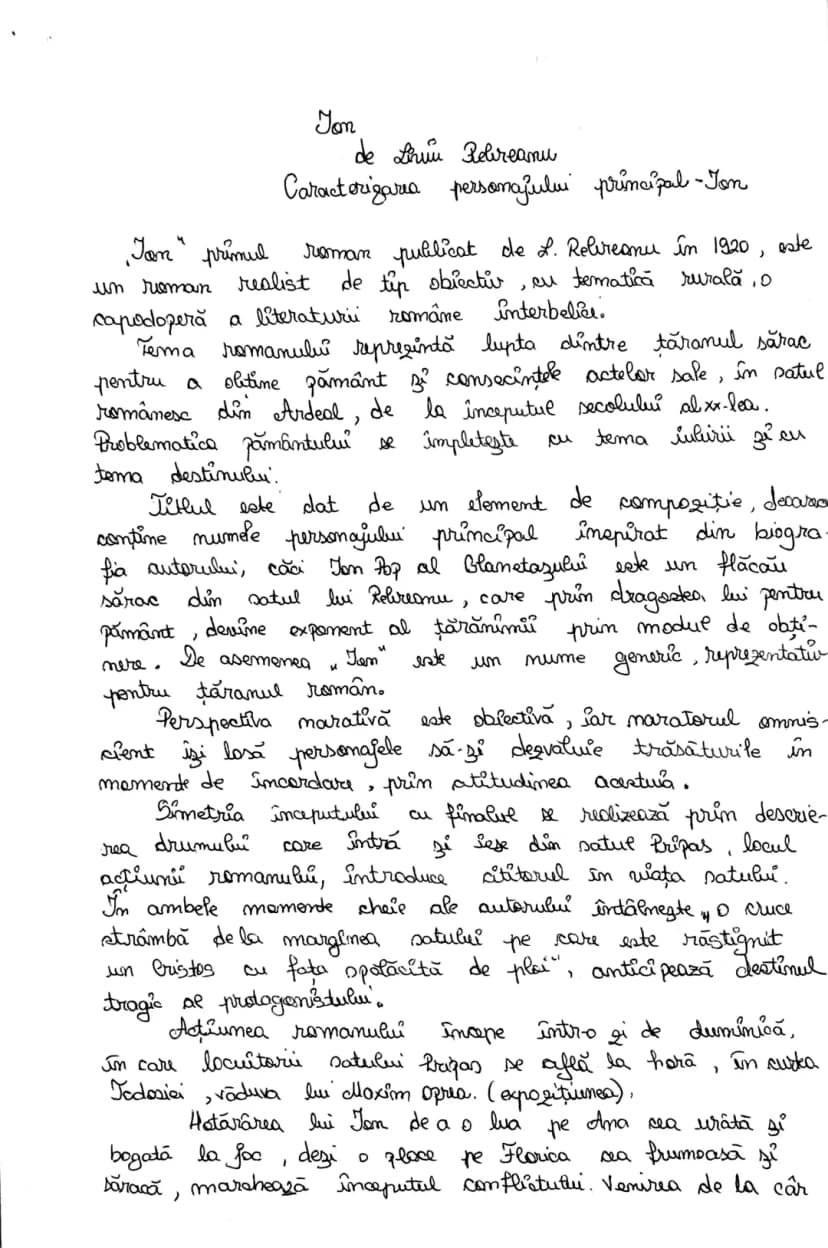 Ion
de Liviu Rebreanu
Caracterizarea personajului principal - Ion
„Ion" primul roman publicat de L. Rebreanu în 1920, este
un roman realist de tip obiectiv, cu tematică rurală, o
capodoperă a literaturii române interbelice.
Tema romanului reprezintă lupta dintre țăranul sărac
pentru a obține pământ și consecințele actelor sale, în satul
românesc din Ardeal, de la începutul secolului al xx-lea.
Problematica pământului se împletește cu tema iubirii și cu
tema destinului.
Titlul este dat de un element de compoziție, deoarece
conține numele personajului principal inspirat din biogra-
fia autorului, căci Ion Pop al Glanetașului este un flăcău
sărac din satul lui Rebreanu, care prin dragostea lui pentru
pământ, devine exponent al țărănimii prin modul de obți-
nere. De asemenea „Ion" este un nume generic, reprezentativ
pentru țăranul român.
Perspectiva narativă este obiectivă, iar naratorul omnis-
cient își lasă personajele să-și dezvăluie trăsăturile în
momente de încordare, prin atitudinea acestuia.
Simetria începutului cu finalul se realizează prin descrie-
rea drumului care intră și iese din satul Pripas, locul
acțiunii romanului, introduce cititorul în viața satului.
În ambele momente cheie ale autorului întâlnește „O cruce
strâmbă de la marginea satului pe care este răstignit
un Cristos cu fața spălăcită de ploi", anticipează destinul
tragic al protagonistului.
Acțiunea romanului începe într-o zi de duminică,
în care locuitorii satului Pripas se află la horă, în curtea
Todosiei, văduva lui Maxim Oprea. (expozițiunea).
Hotărârea lui Ion de a o lua pe Ana cea urâtă și
bogată la joc, deși o place pe Florica cea frumoasă și
săracă, marchează începutul conflictului. Venirea de la câr